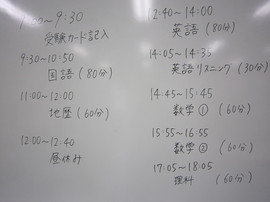 ~9:30
受験カード記入
9:30~10:50
国語(80分)
11:00~12:00
地歴(60分)
12:00~12:40
昼休み
12:40~14:00
英語(80分)
14:05~14:35
英語リスニング(30分)
14:45~15:45
数学①(60分)
15:55~16:55
数学②(60分)
17:05~18:05
理科(60分)